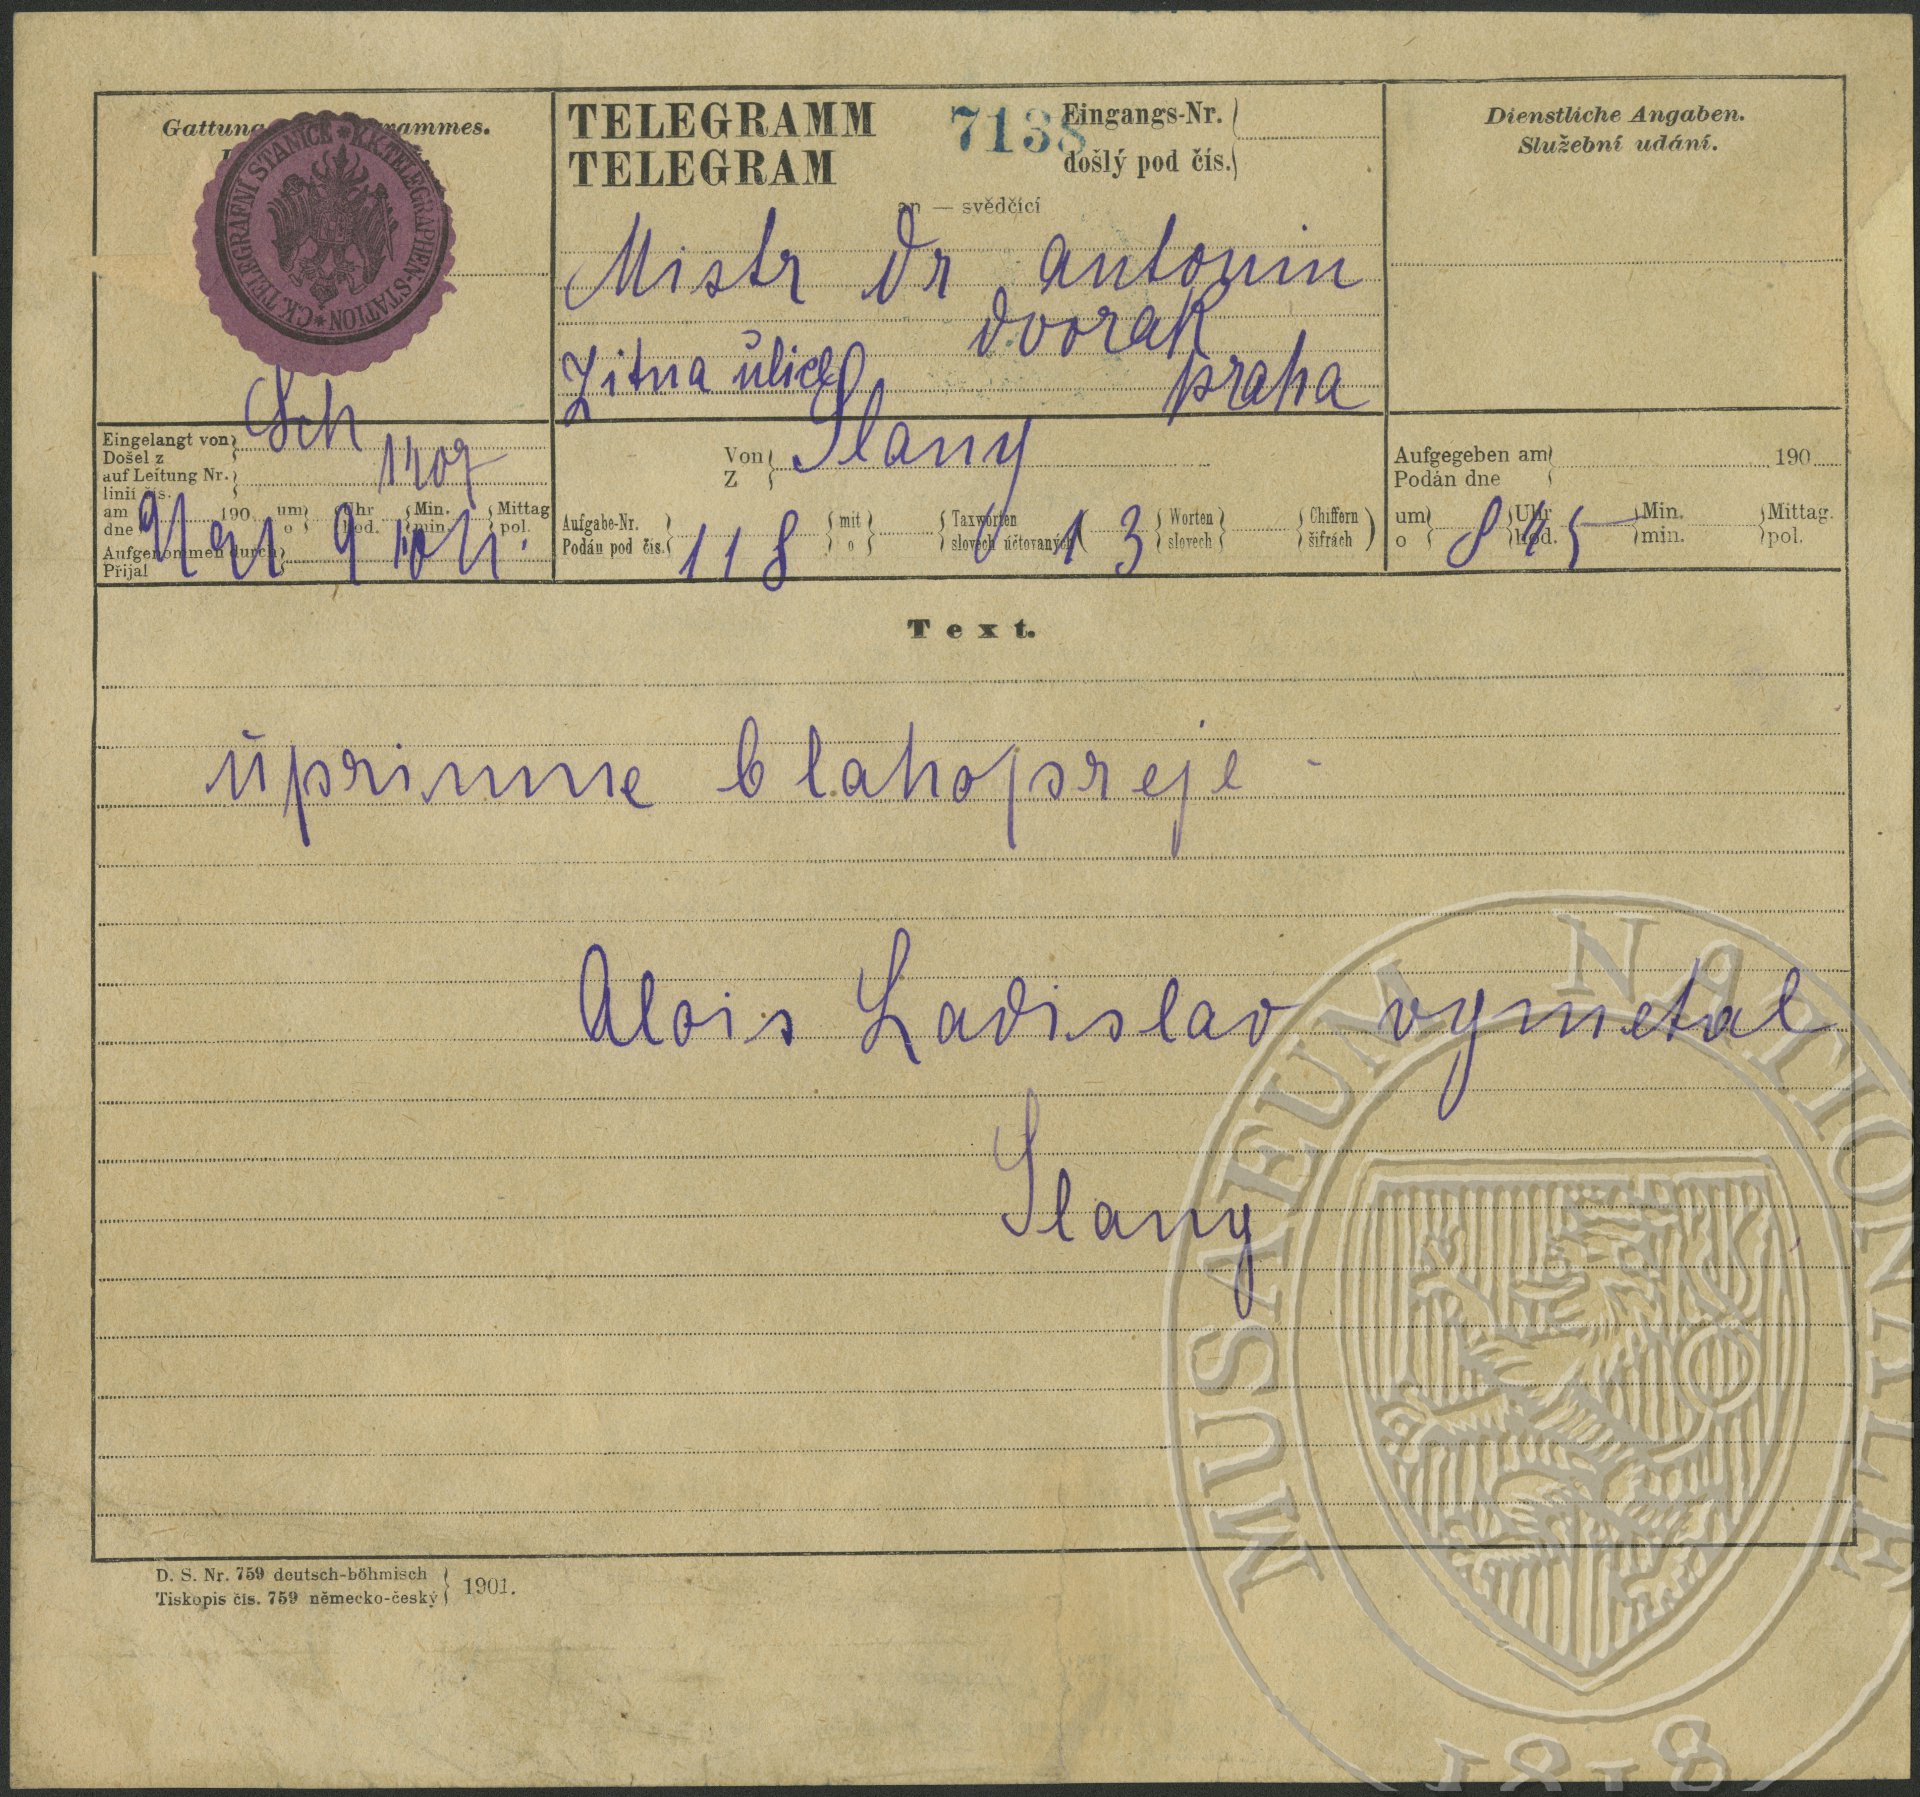 Gattung rammes.
K.K. TELEGRAPHEN-STATION * C.K. TELEGRAFNÍ STANICE *
TELEGRAMM
TELEGRAM
7138
Eingangs-Nr.
došlý pod čís.
an — svědčící
Dienstliche Angaben.
Služební udání.
Mistr Dr antonin
dvorak
Zitna ulice praha
Eingelangt von
Došel z
Sch
auf Leitung Nr.
linií čís.
am
dne
190
um
o
Uhr
hod.
Min.
min.
Mittag
pol.
Aufgenommen durch
Přijal
Von
Z
Slany
Aufgabe-Nr.
Podán pod čís.
118
mit
o
Taxworten
slovech účtovaných
13
Worten
slovech
Chiffern
šifrách
Aufgegeben am 190
Podán dne
um
o
8 45
Uhr
hod.
Min.
min.
Mittag.
pol.
Text.
uprimne blahopreje -
Alois Ladislav vymetal
Slany
D. S. Nr. 759 deutsch-böhmisch
Tiskopis čís. 759 německo-český
1901.
MUSAEUM NATIONALE
1818